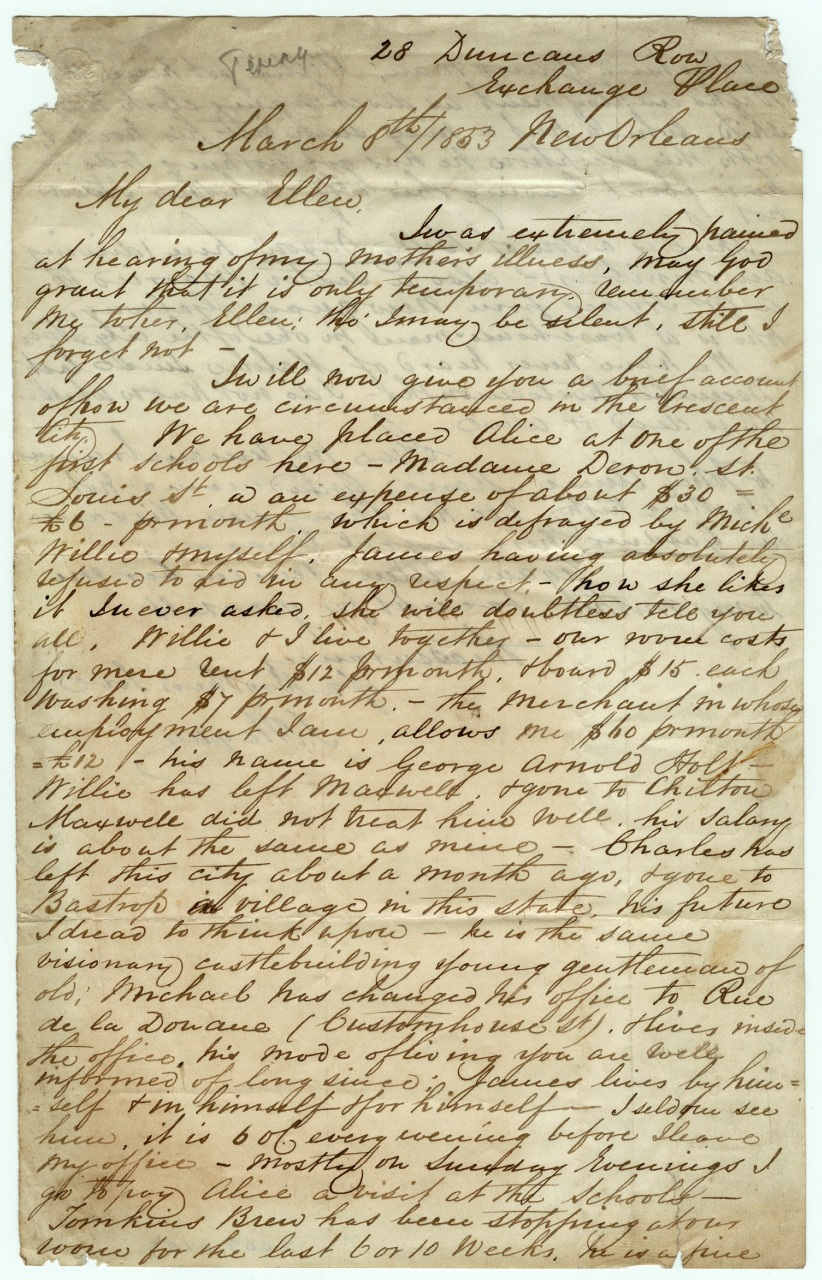 28 Duncans Row
Exchange Place
March 8th/1853 New Orleans
My dear Ellen,
I was extremely pained
at hearing of my mother's illness, may God
grant that it is only temporary, remember
me to her, Ellen; tho' I may be silent, still I
forget not -
I will now give you a brief account
of how we are circumstanced in the Crescent
City. We have placed Alice at one of the
first schools here - Madame Deron, St.
Louis St. a an expense of about $30 =
£6 - pr month, which is defrayed by Miche
Willie & myself. James having absolutely
refused to aid in any respect. - how she likes
it I never asked, she will doubtless tell you
all. Willie & I live together - our room costs
for mere rent $12 pr month, & board $15 each
washing $7 pr month. - the merchant in whose
employment I am, allows me $60 pr month
= £12 - his name is George Arnold Holt -
Willie has left Maxwell, & gone to Chilton
Maxwell did not treat him well. his salary
is about the same as mine - Charles has
left this city about a month ago, & gone to
Bastrop a village in this state, his future
I dread to think upon - he is the same
visionary castlebuilding young gentleman of
old; Michael has changed his office to Rue
de la Douane (Customhouse st). & lives inside
the office, his mode of living you are well
informed of long since; James lives by him=
=self & in himself & for himself - I seldom see
him, it is 6 oC every evening before I leave
my office - mostly on Sunday Evenings I
go to pay Alice a visit at the Schools -
Tomkins Brew has been stopping at our
room for the last 6 or 10 Weeks. he is a fine